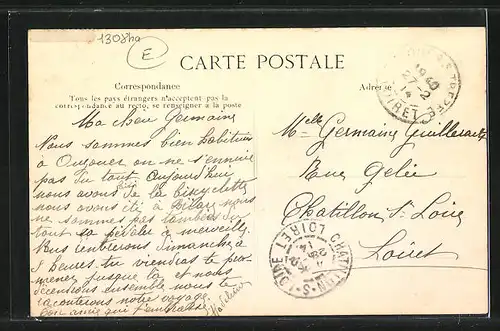 13084a
E
CARTE POSTALE
Correspondance
Tous les pays étrangers n'acceptent pas la
correspondance au recto, se renseigner à la poste
Adresse
Ma chère Germaine
Nous sommes bien habituées
à Ouzouer on ne s'ennuie
pas du tout Aujourd'hui
nous avons fait de la bicyclette
nous avons été à Dilou nous
ne sommes pas tombées du
tout ça pédale à merveille
Nous rentrerons dimanche à
5 heures tu viendras te pro-
mener jusque là et nous
redescendrons ensemble nous te
raconterons notre voyage.
Ton amie qui t'embrasse
Madeleine
Mlle Germaine
Rue Gelée
Chatillon St Loire
Loiret
1940
27-2
LOIRET
CHATILLON-S-LOIRE
LOIRET